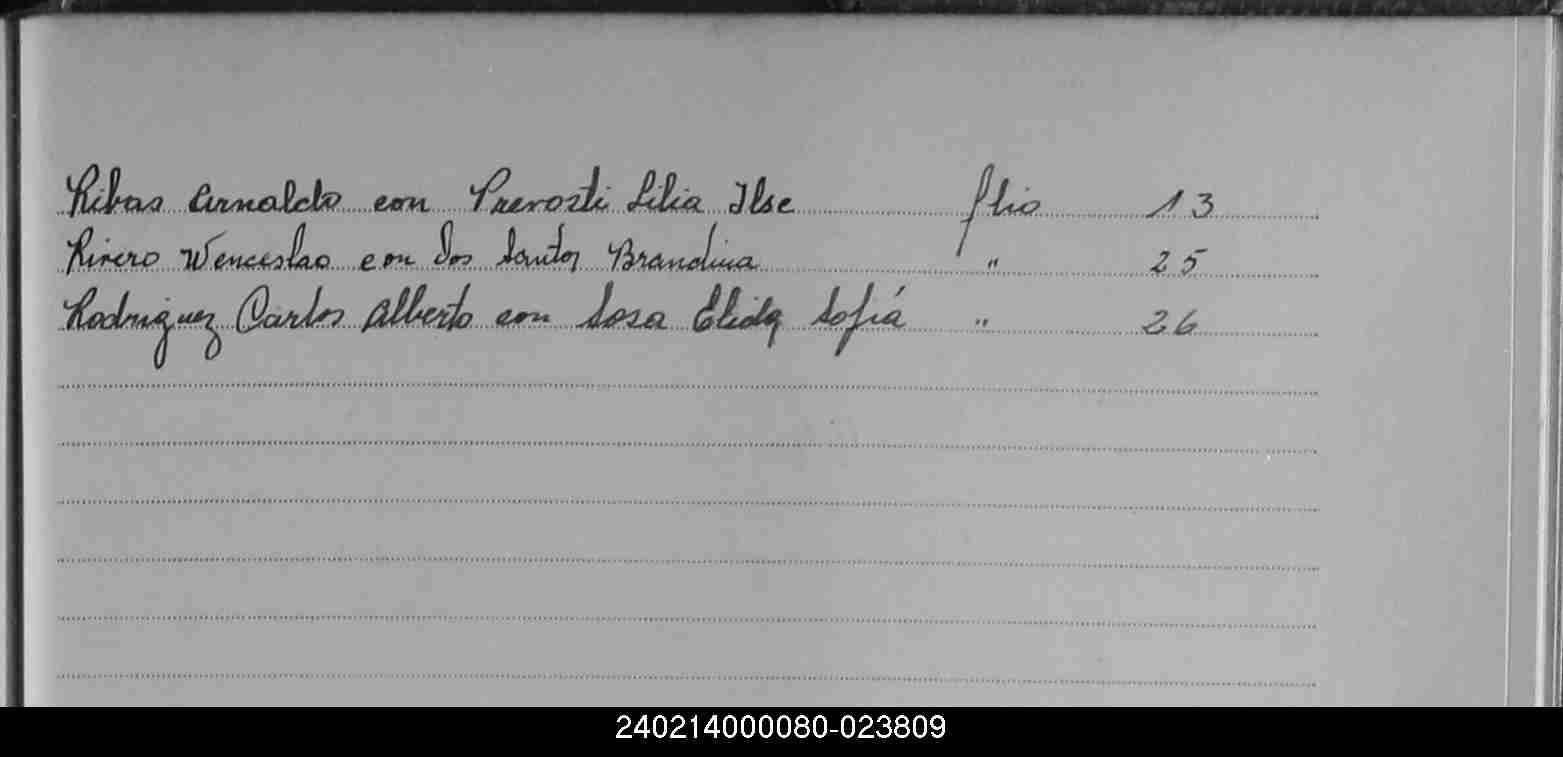 Ribas Arnaldo con Prevosti Lilia Ilse flio 13
Rivero Wenceslao con Dos Santos Brandina " 25
Rodriguez Carlos Alberto con Sosa Elida Sofiá " 26
240214000080-023809